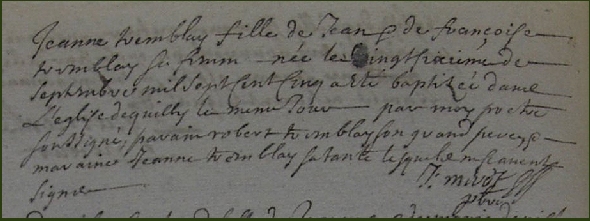 Jeanne tremblay fille de Jean & de françoise
tremblay sa femm née le vingtsixieme de
Septembre mil Sept Cent Cinq a eté baptizée dans
L'eglise de quilly le meme Jour par moy
soussigné, parain robert tremblay son grand pere &
maraine Jeanne tremblay sa tante lesquels
Signer